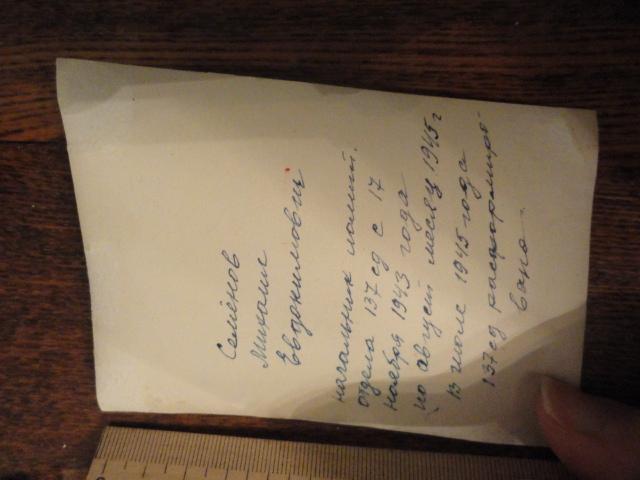 Семёнов
Михаил
Евдокимович
начальник полит.
отдела 137 сд с 17
ноября 1943 года
по август месяц 1945 г
13 июле 1945 года
137 сд расформиро-
вана